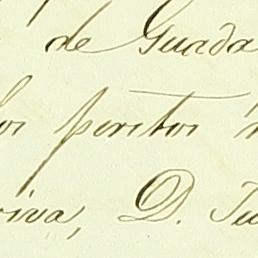 de Guada
los peritos
riva, D. Ju